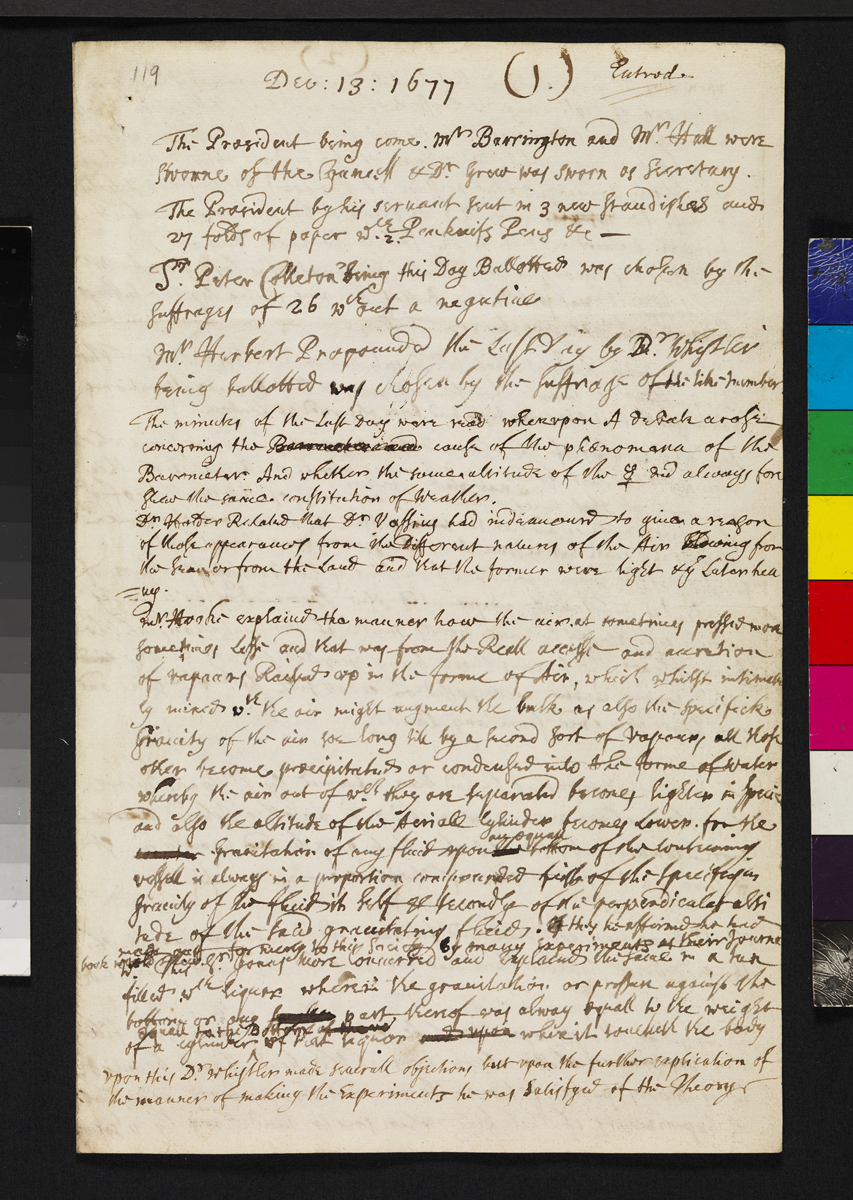 119
Dec: 13: 1677 (1.) Entred.
The President being come. Mr Barrington and Mr Hall were
sworne of the Councell & Dr Grew was sworn as Secretary.
The President by his servant sent in 3 new standishes and
27 folds of paper wth 2 Penknifs Pens &c —
Sr. Peter Colleton being this Day Ballotted was chosen by the
suffrages of 26 wthout a negative
Mr Herbert Propounded the Last Day by Dr Whistler
being ballotted was chosen by the suffrage of the like number
The minutes of the Last day were read whereupon A debate arose
concerning the Barometer and cause of the phænomena of the
Barometer. And whether the same altitude of the ☿ did always fore
shew the same constitution of weather.
Dr Holder Related that Dr Vossius had indeavourd to give a reason
of those appearances from the Different natures of the Air blowing from
the Sea or from the Land and that the former were light & ye Later hea
=vy.
Mr. Hooke explaind the manner how the air at sometimes pressed more
sometimes Lesse and that was from the Reall accesse and accretion
of vapours Raised up in the forme of Air, which whilst intimate
ly mixed wth. the air might augment the bulk as also the specifick
gravity of the air soe long till by a second sort of vapours all those
other become præcipitated or condensed into the forme of water
whereby the air out of wch they are separated becomes lighter in specie
and also the altitude of the Aeriall Cylinder becomes Lower. for the
any equall
gravitation of any fluid upon the bottom of the containing
vessell is always in a proportion compounded first of the specifique
gravity of the fluid it self & secondly of the perpendicular alti
tude of the said gravitating fluid. this he affirmed he had
made formerly to this Society by many experiments as their Journall
book would this 6 years more concerned and explaind the same in a tun
filled wth liquor wherein the gravitation or pressure against the
bottom or any part thereof was alway equall to the weight
equall to the Bottom of
of a cylinder of that liquor and upon where it toucheth the body
upon this Dr Whistler made severall objections but upon the further explication of
the manner of making the Experiments he was Satisfyed of the Theory